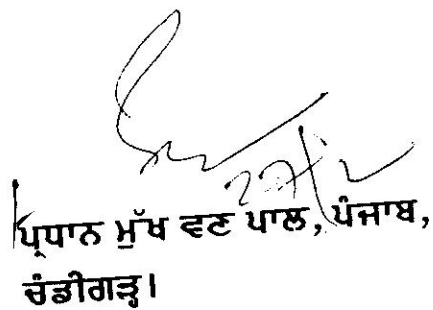 ਪ੍ਰਧਾਨ ਮੁੱਖ ਵਣ ਪਾਲ, ਪੰਜਾਬ,
ਚੰਡੀਗੜ੍ਹ।